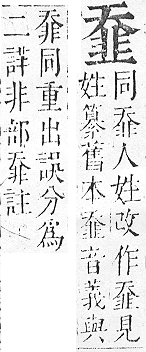 同 人姓改作 見
姓纂舊本 音義與
同重出誤分爲
二詳非部 註